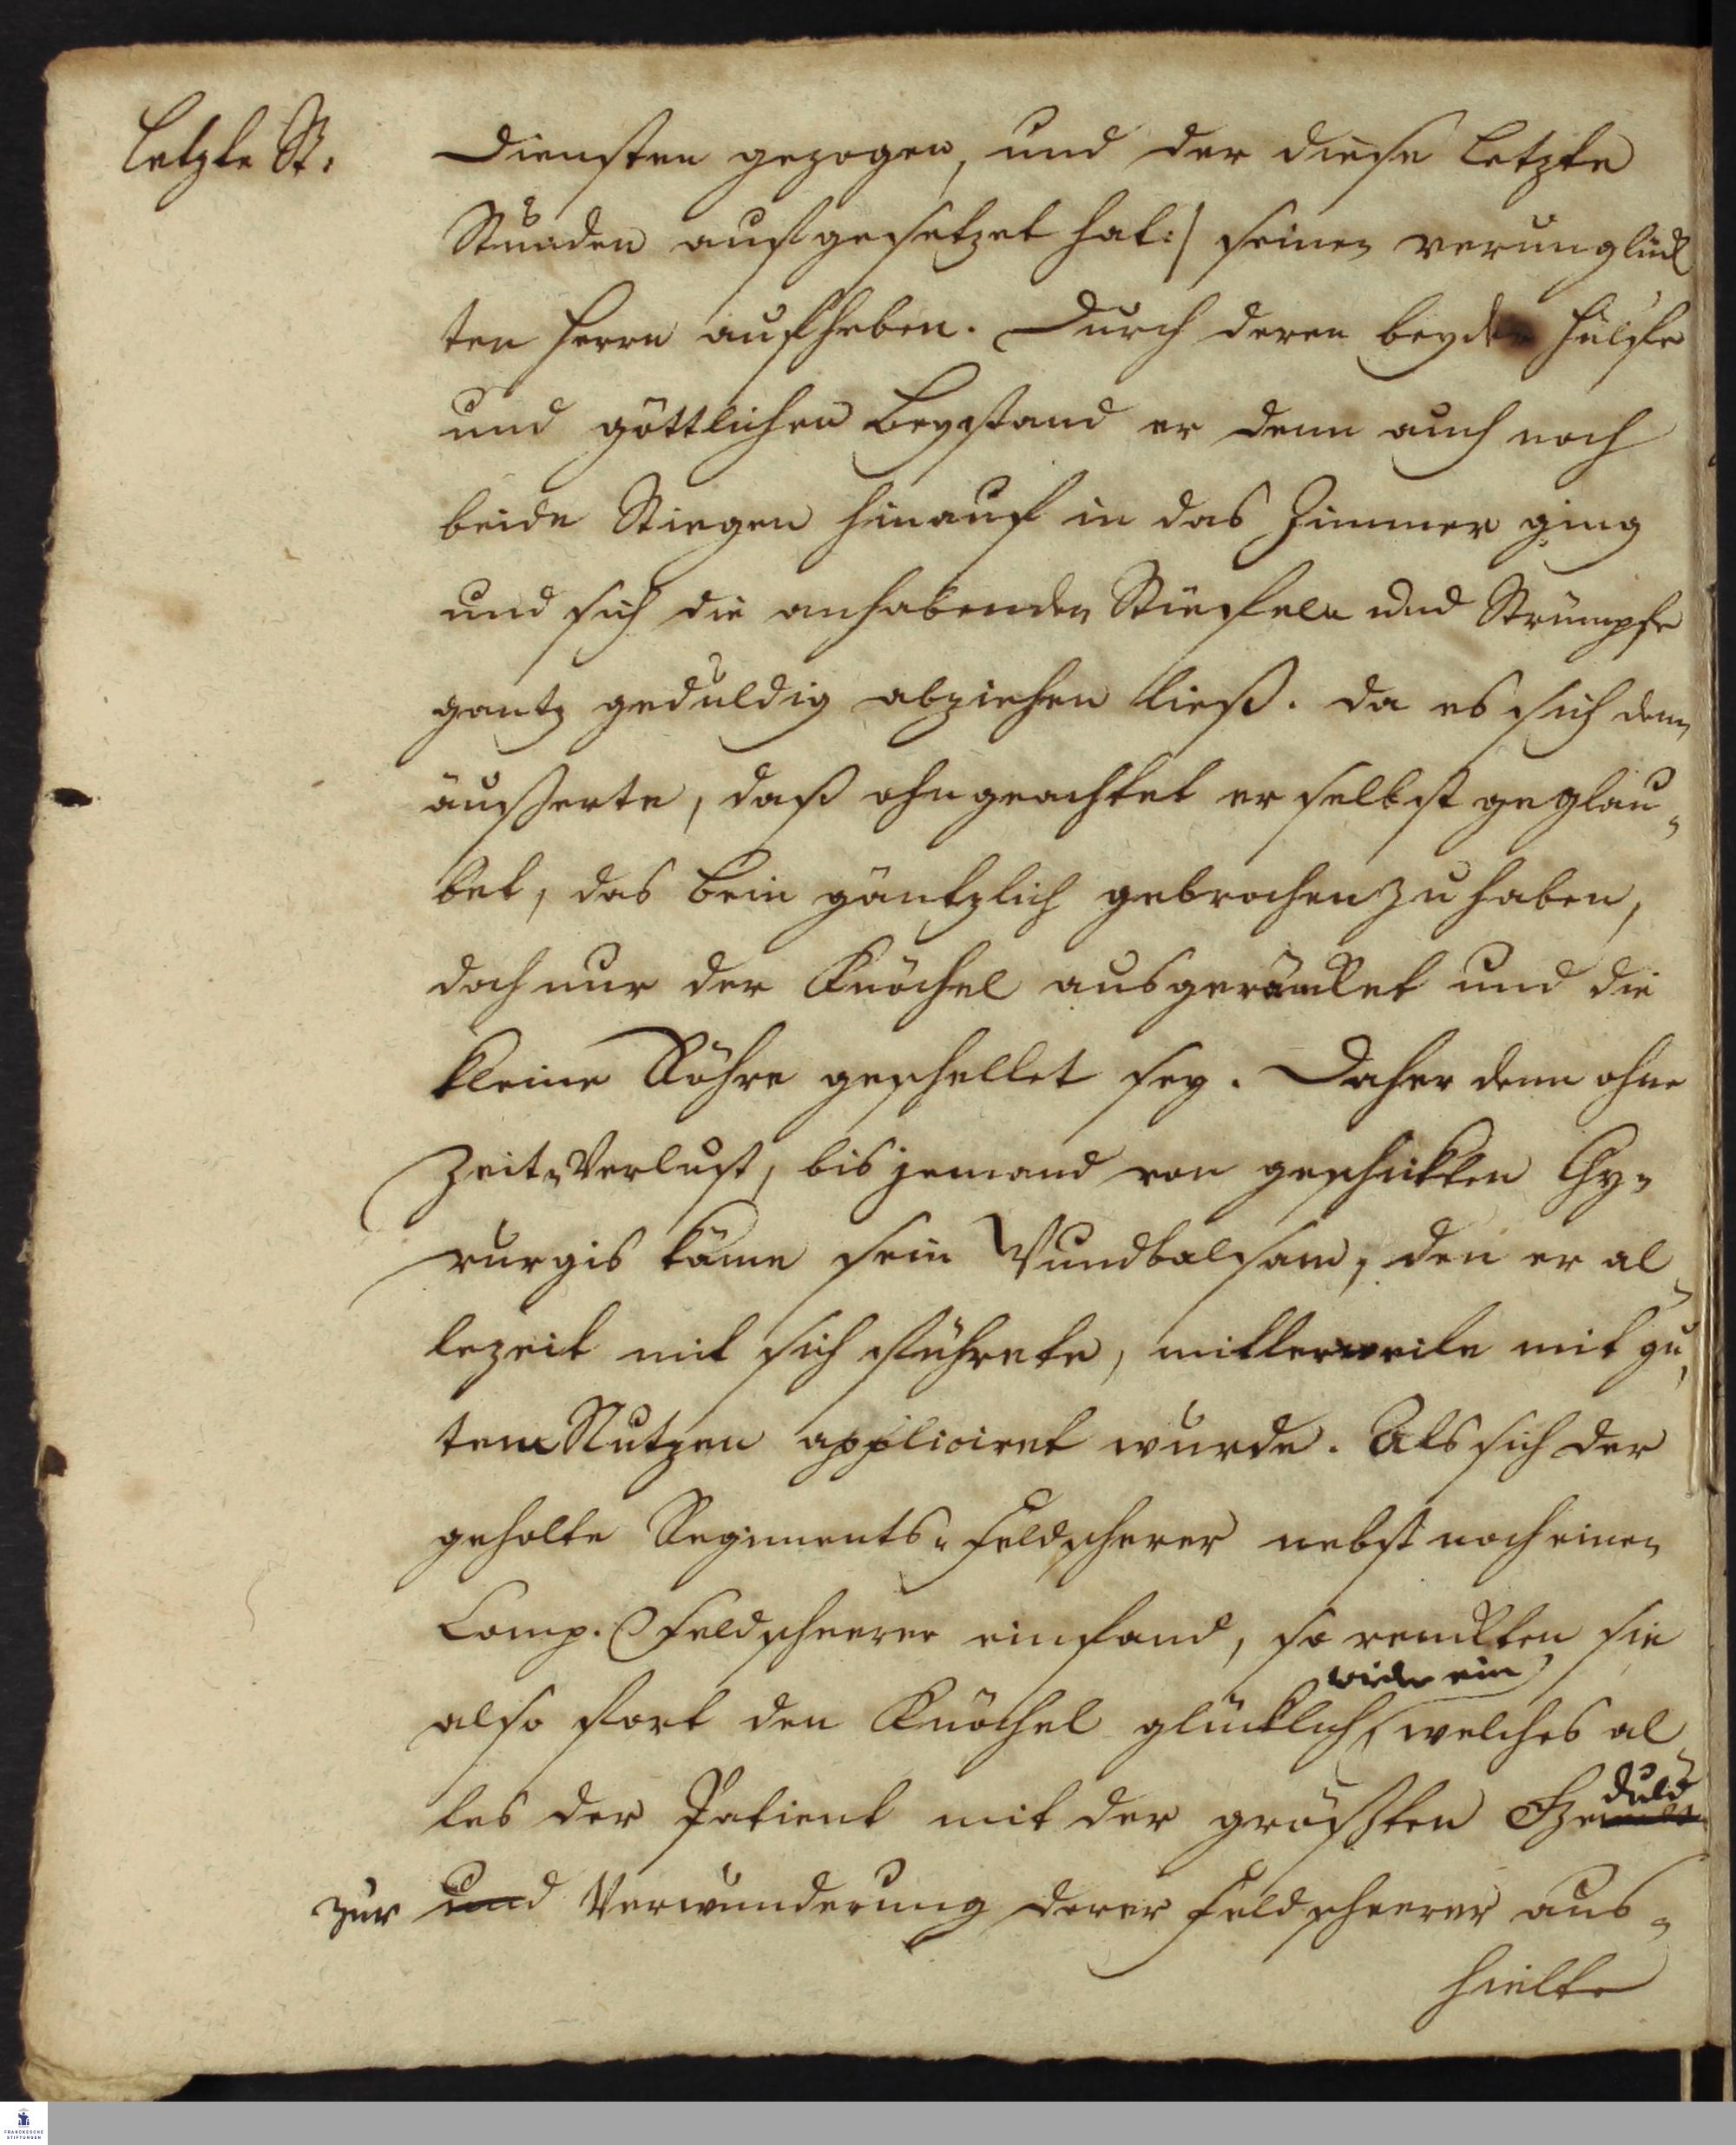 letzte St.
Diensten gezogen, und der diese letzte
Stunden aufgesetzet hat:/ seinen verunglück
ten Herrn aufheben. Durch deren beyder Hülfe
und göttlichen Beystand er denn auch noch
beide Stiegen hinauf in das Zimmer ging
und sich die anhabenden Stiefeln und Strümpfe
gantz geduldig abziehen ließ. Da es sich denn
äusserte, daß ohngeachtet er selbst geglau-
bet, das Bein gäntzlich gebrochen zu haben,
doch nur der Knöchel ausgeräncket und die
kleine Röhre geschellet sey. Daher denn ohne
Zeit-Verlust, bis jemand von geschickten Chy-
rurgis käme sein Wundbalsam, den er al-
lezeit mit sich führete, mitlerweile mit gu-
tem Nutzen appliciret wurde. Als sich der
geholte Regiments-Feldscherer nebst noch einen
Comp. Feldscheerer einfand, so renckten sie
wieder ein
also fort den Knöchel glücklich, welches al-
duld
les der Patient mit der grösten Ge
zur und Verwunderung derer Feldscheerer aus-
hielte
FRANCKESCHE
STIFTUNGEN